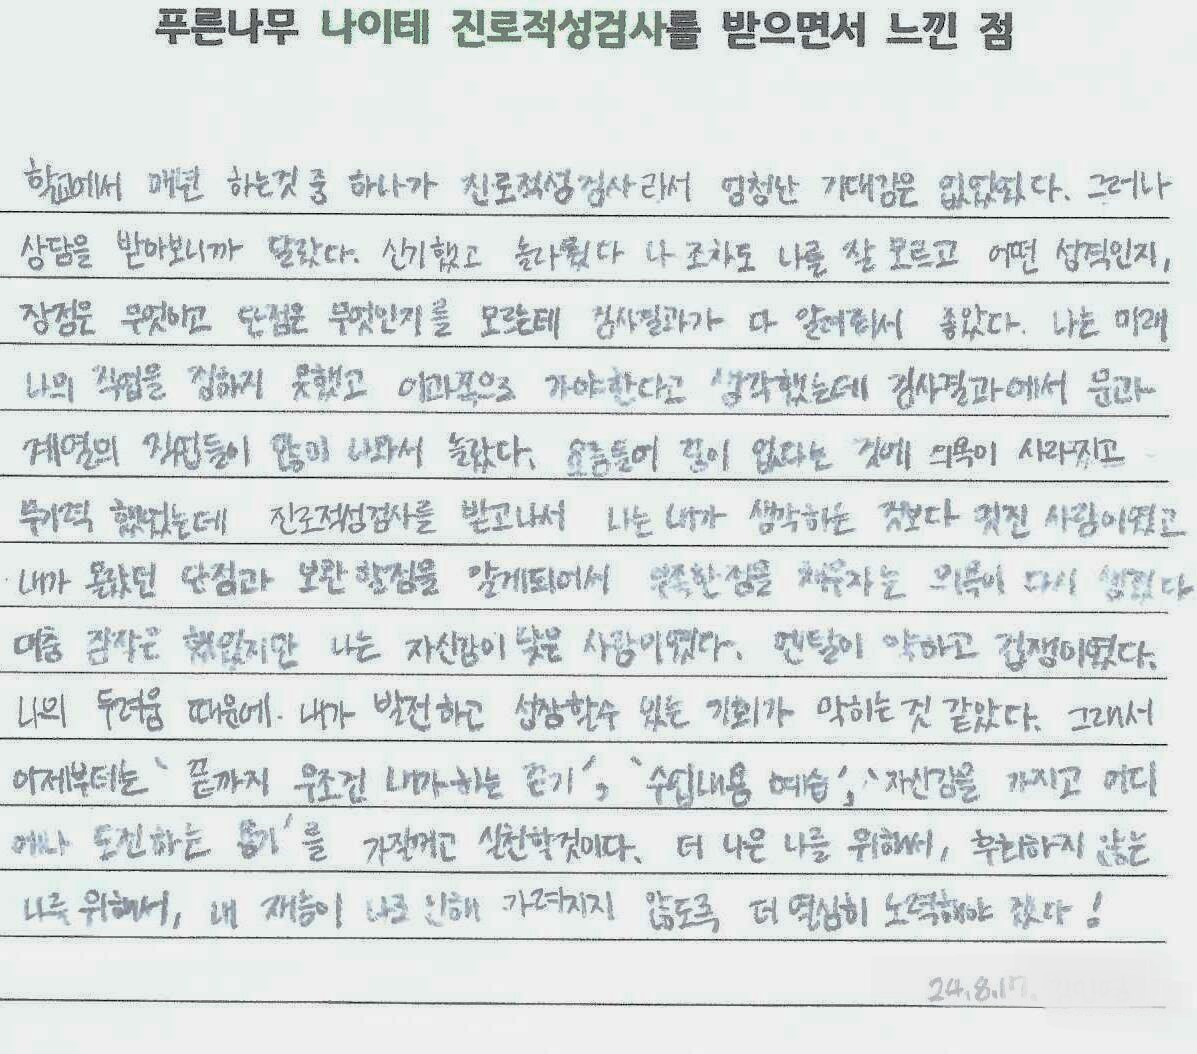 푸른나무 나이테 진로적성검사를 받으면서 느낀 점
학교에서 매년 하는것 중 하나가 진로적성검사라서 엄청난 기대감은 없었었다. 그러나
상담을 받아보니까 달랐다. 신기했고 놀라웠다 나 조차도 나를 잘 모르고 어떤 성격인지,
장점은 무엇이고 단점은 무엇인지를 모르는데 검사결과가 다 알려줘서 좋았다. 나는 미래
나의 직업을 정하지 못했고 이과쪽으로 가야한다고 생각했는데 검사결과에서 문과
계열의 직업들이 많이 나와서 놀랐다. 요즘들어 길이 없다는 것에 의욕이 사라지고
무기력 했었는데 진로적성검사를 받고나서 나는 내가 생각하는 것보다 멋진 사람이였고
내가 몰랐던 단점과 보완할점을 알게되어서 부족한점을 채우자는 의욕이 다시 생겼다
대충 짐작은 했었지만 나는 자신감이 낮은 사람이였다. 멘탈이 약하고 겁쟁이였다.
나의 두려움 때문에 내가 발전하고 성장할수 있는 기회가 막히는 것 같았다. 그래서
이제부터는 '끝까지 무조건 내가 하는 끈기', '수업내용 예습', '자신감을 가지고 어디
에나 도전하는 용기'를 가질꺼고 실천할것이다. 더 나은 나를 위해서, 후회하지 않는
나를 위해서, 내 재능이 나로 인해 가려지지 않도록 더 열심히 노력해야 겠다!
24.8.17.